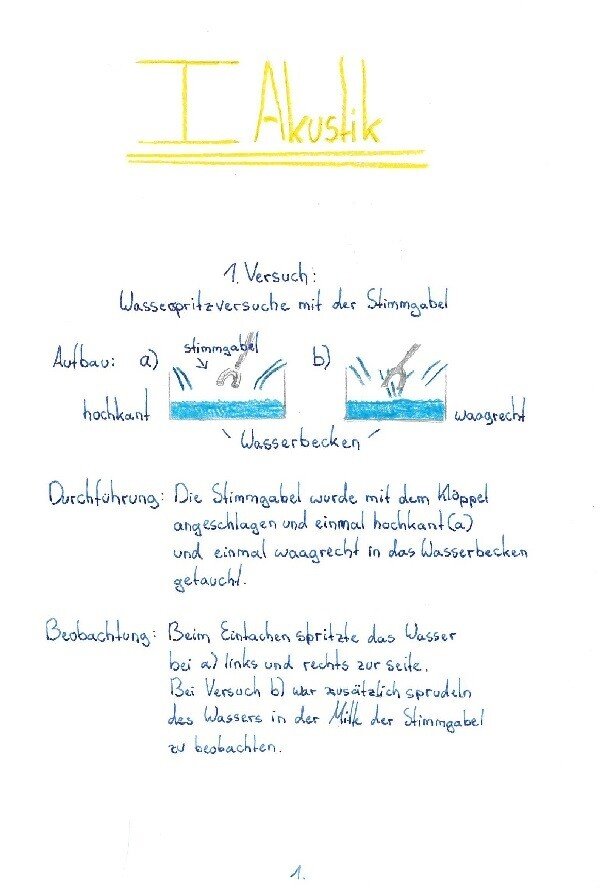 I Akustik
1. Versuch:
Wasserspritzversuche mit der Stimmgabel
Aufbau: a) stimmgabel b)
hochkant waagrecht
Wasserbecken
Durchführung: Die Stimmgabel wurde mit dem Klöppel
angeschlagen und einmal hochkant (a)
und einmal waagrecht in das Wasserbecken
getaucht.
Beobachtung: Beim Eintachen spritzte das Wasser
bei a) links und rechts zur seite.
Bei Versuch b) war zusätzlich sprudeln
des Wassers in der Mitte der Stimmgabel
zu beobachten.
1.